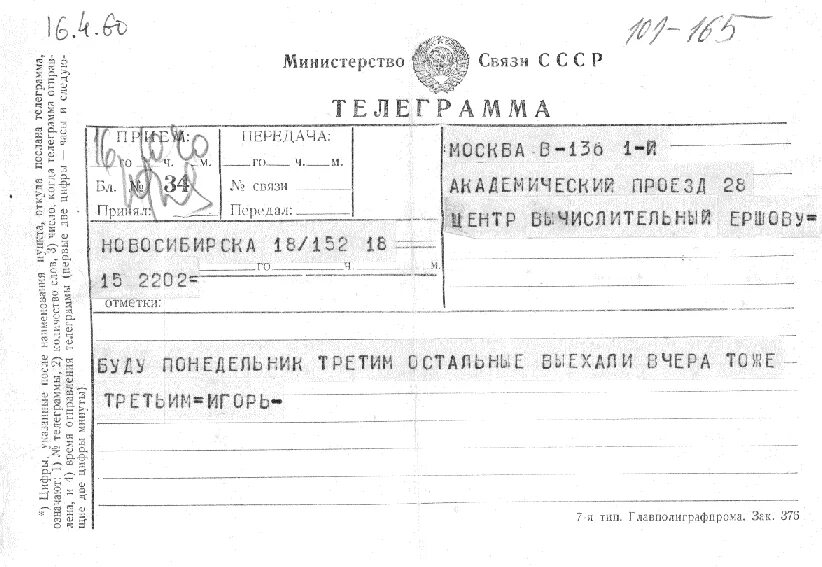 16.4.60
101-165
Министерство Связи СССР
ТЕЛЕГРАММА
ПРИЕМ:
16
го ч. м.
Бл. № 34
Принял:
ПЕРЕДАЧА:
го ч. м.
№ связи
Передал:
МОСКВА В-136 1-Й
АКАДЕМИЧЕСКИЙ ПРОЕЗД 28
ЦЕНТР ВЫЧИСЛИТЕЛЬНЫЙ ЕРШОВУ=
НОВОСИБИРСКА 18/152 18
го ч. м.
15 2202=
ОТМЕТКИ:
БУДУ ПОНЕДЕЛЬНИК ТРЕТИМ ОСТАЛЬНЫЕ ВЫЕХАЛИ ВЧЕРА ТОЖЕ
ТРЕТЬИМ=ИГОРЬ-
*) Цифры, указанные после наименования пункта, откуда послана телеграмма,
означают: 1) № телеграммы, 2) количество слов, 3) число, когда телеграмма отправ-
лена, и 4) время отправления телеграммы (первые две цифры — часы и следую-
щие две цифры минуты)
7-я тип. Главполиграфпрома. Зак. 375